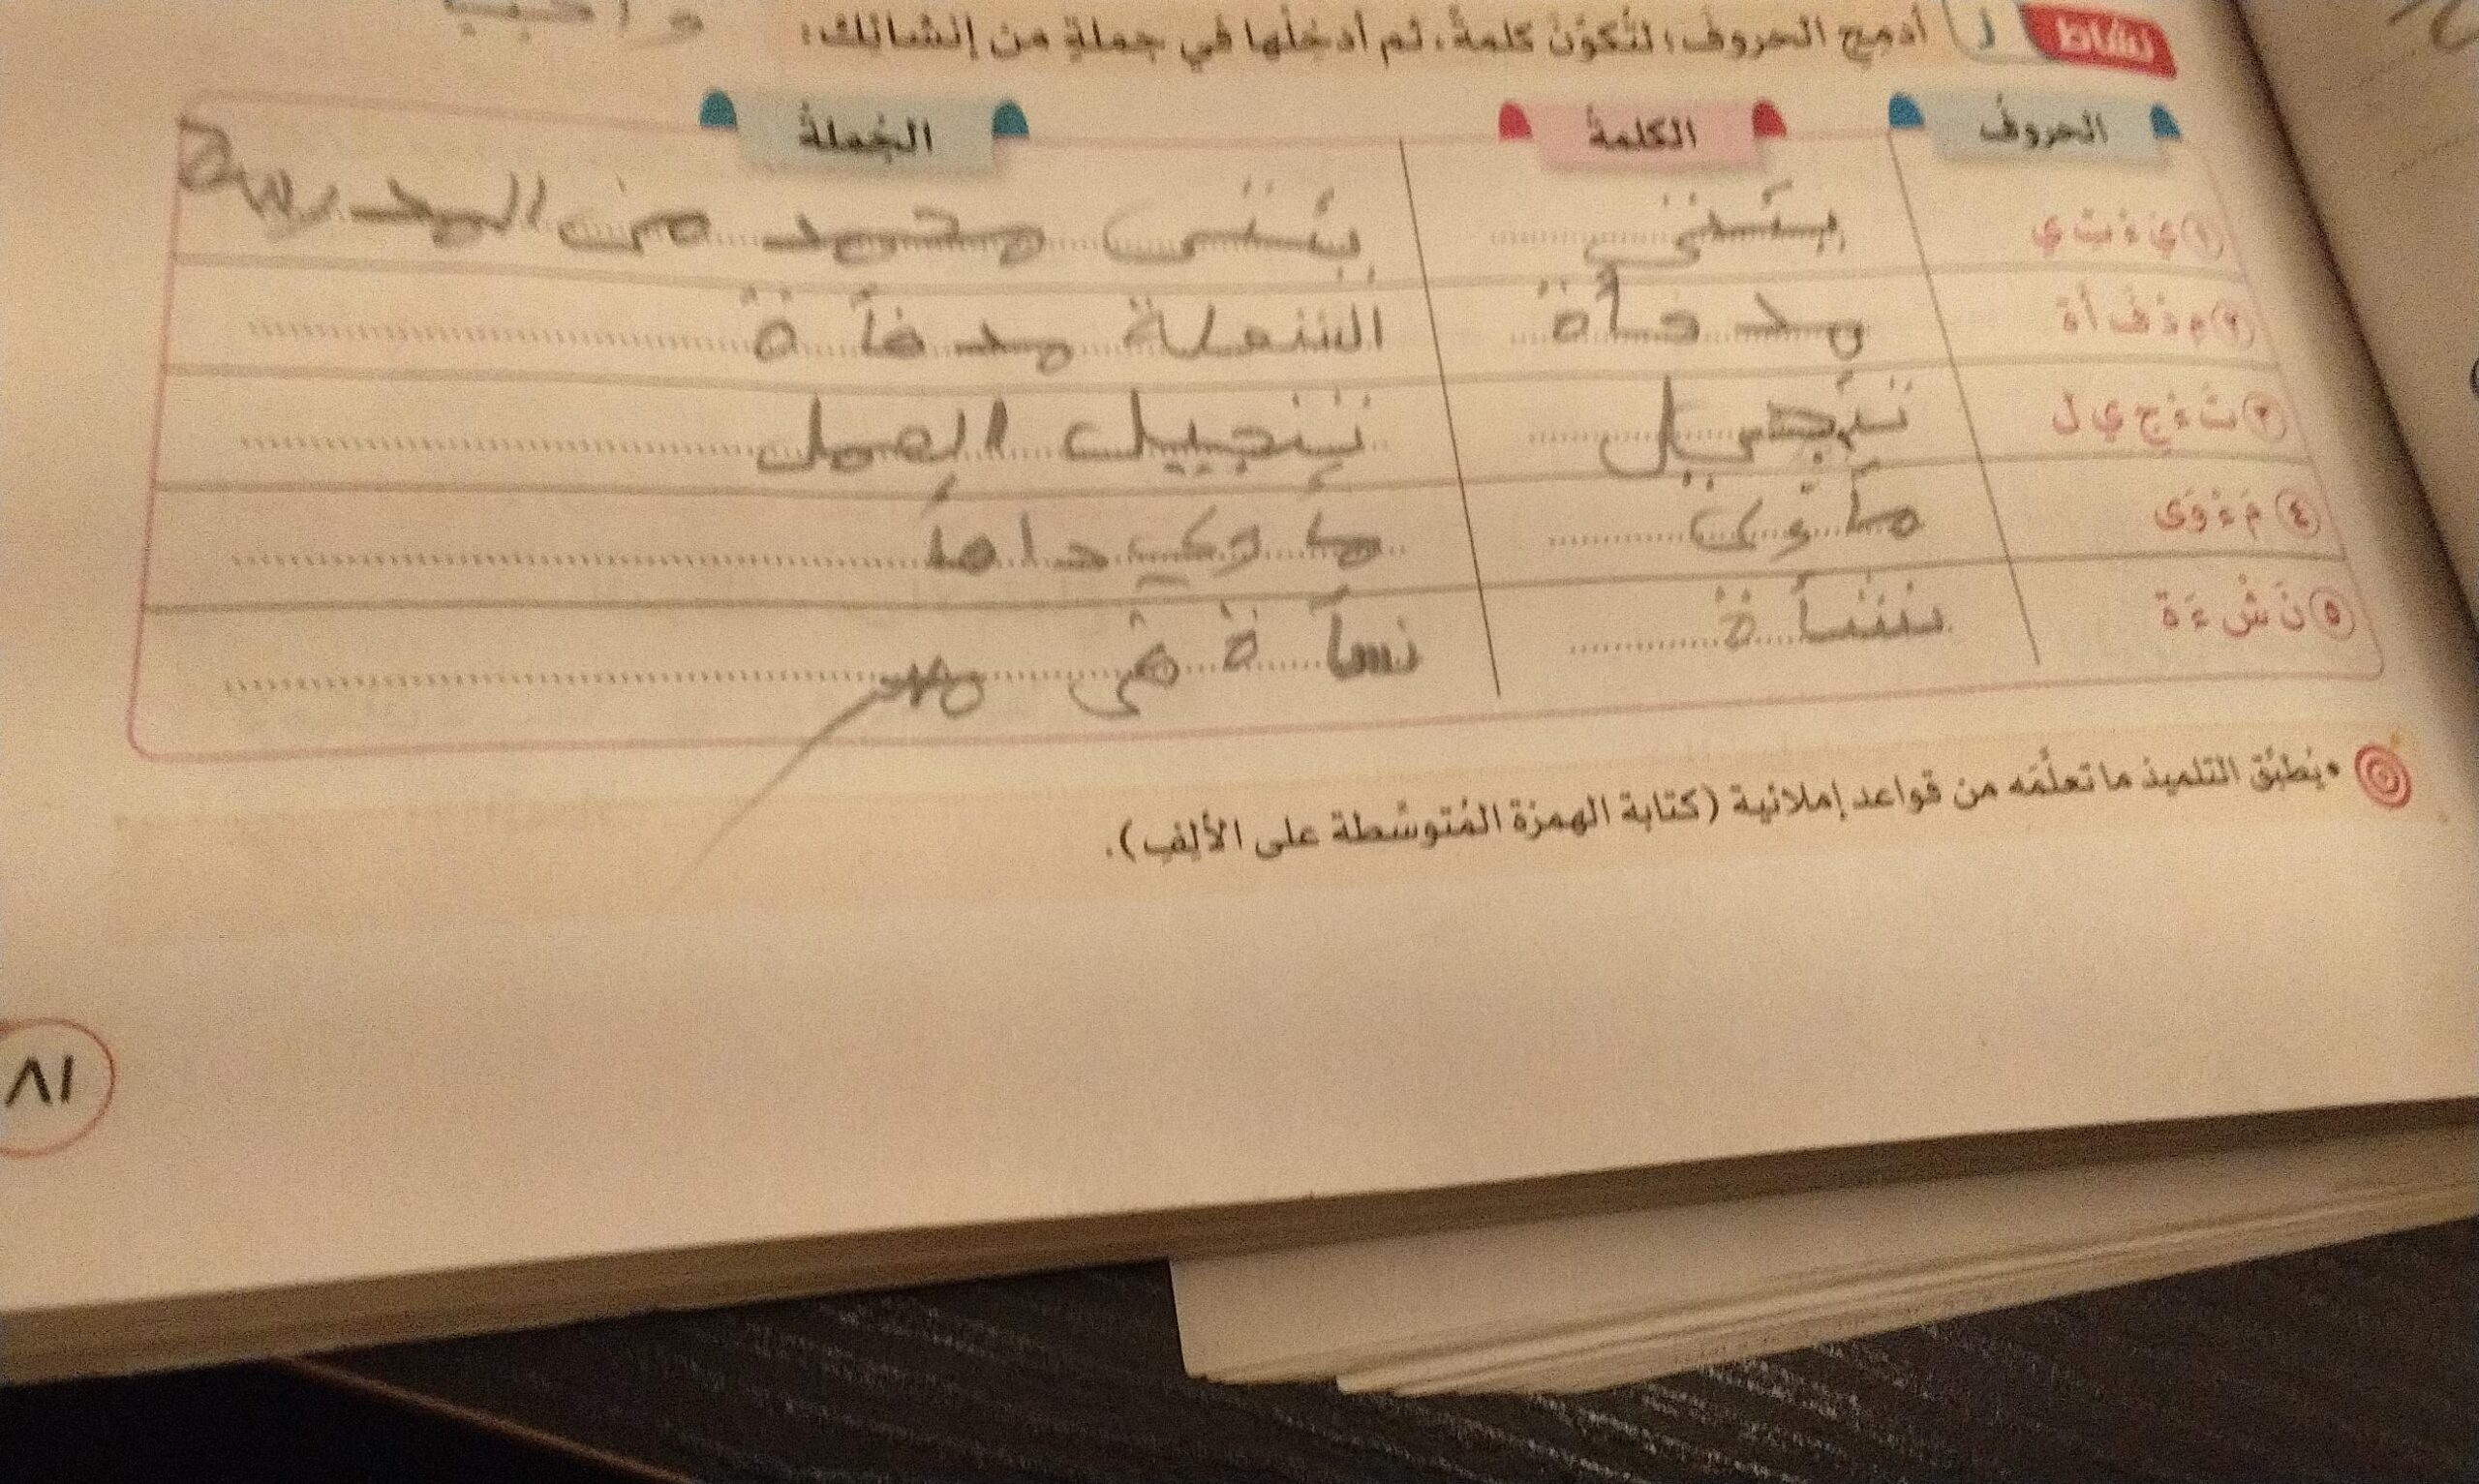 نشاط أدمج الحروف؛ لتكوّن كلمةً، ثم أدخلها في جملةٍ من إنشائك:
الحروف الكلمة الجُملة
① ي ءْ تِ ي يئتي يئتي محمد من المدرسة
② م دْ فَ أة مدفأة الشعلة مدفأة
③ ت ءْ ج ي ل تئجيل تئجيل العمل
④ مَ ءْ وَى مأوى مأوى
⑤ نَ شْ ءَ ة نشأة نسأة في
• يُطبِّق التلميذ ما تعلَّمه من قواعد إملائية (كتابة الهمزة المُتوسِّطة على الألِف).
٨١